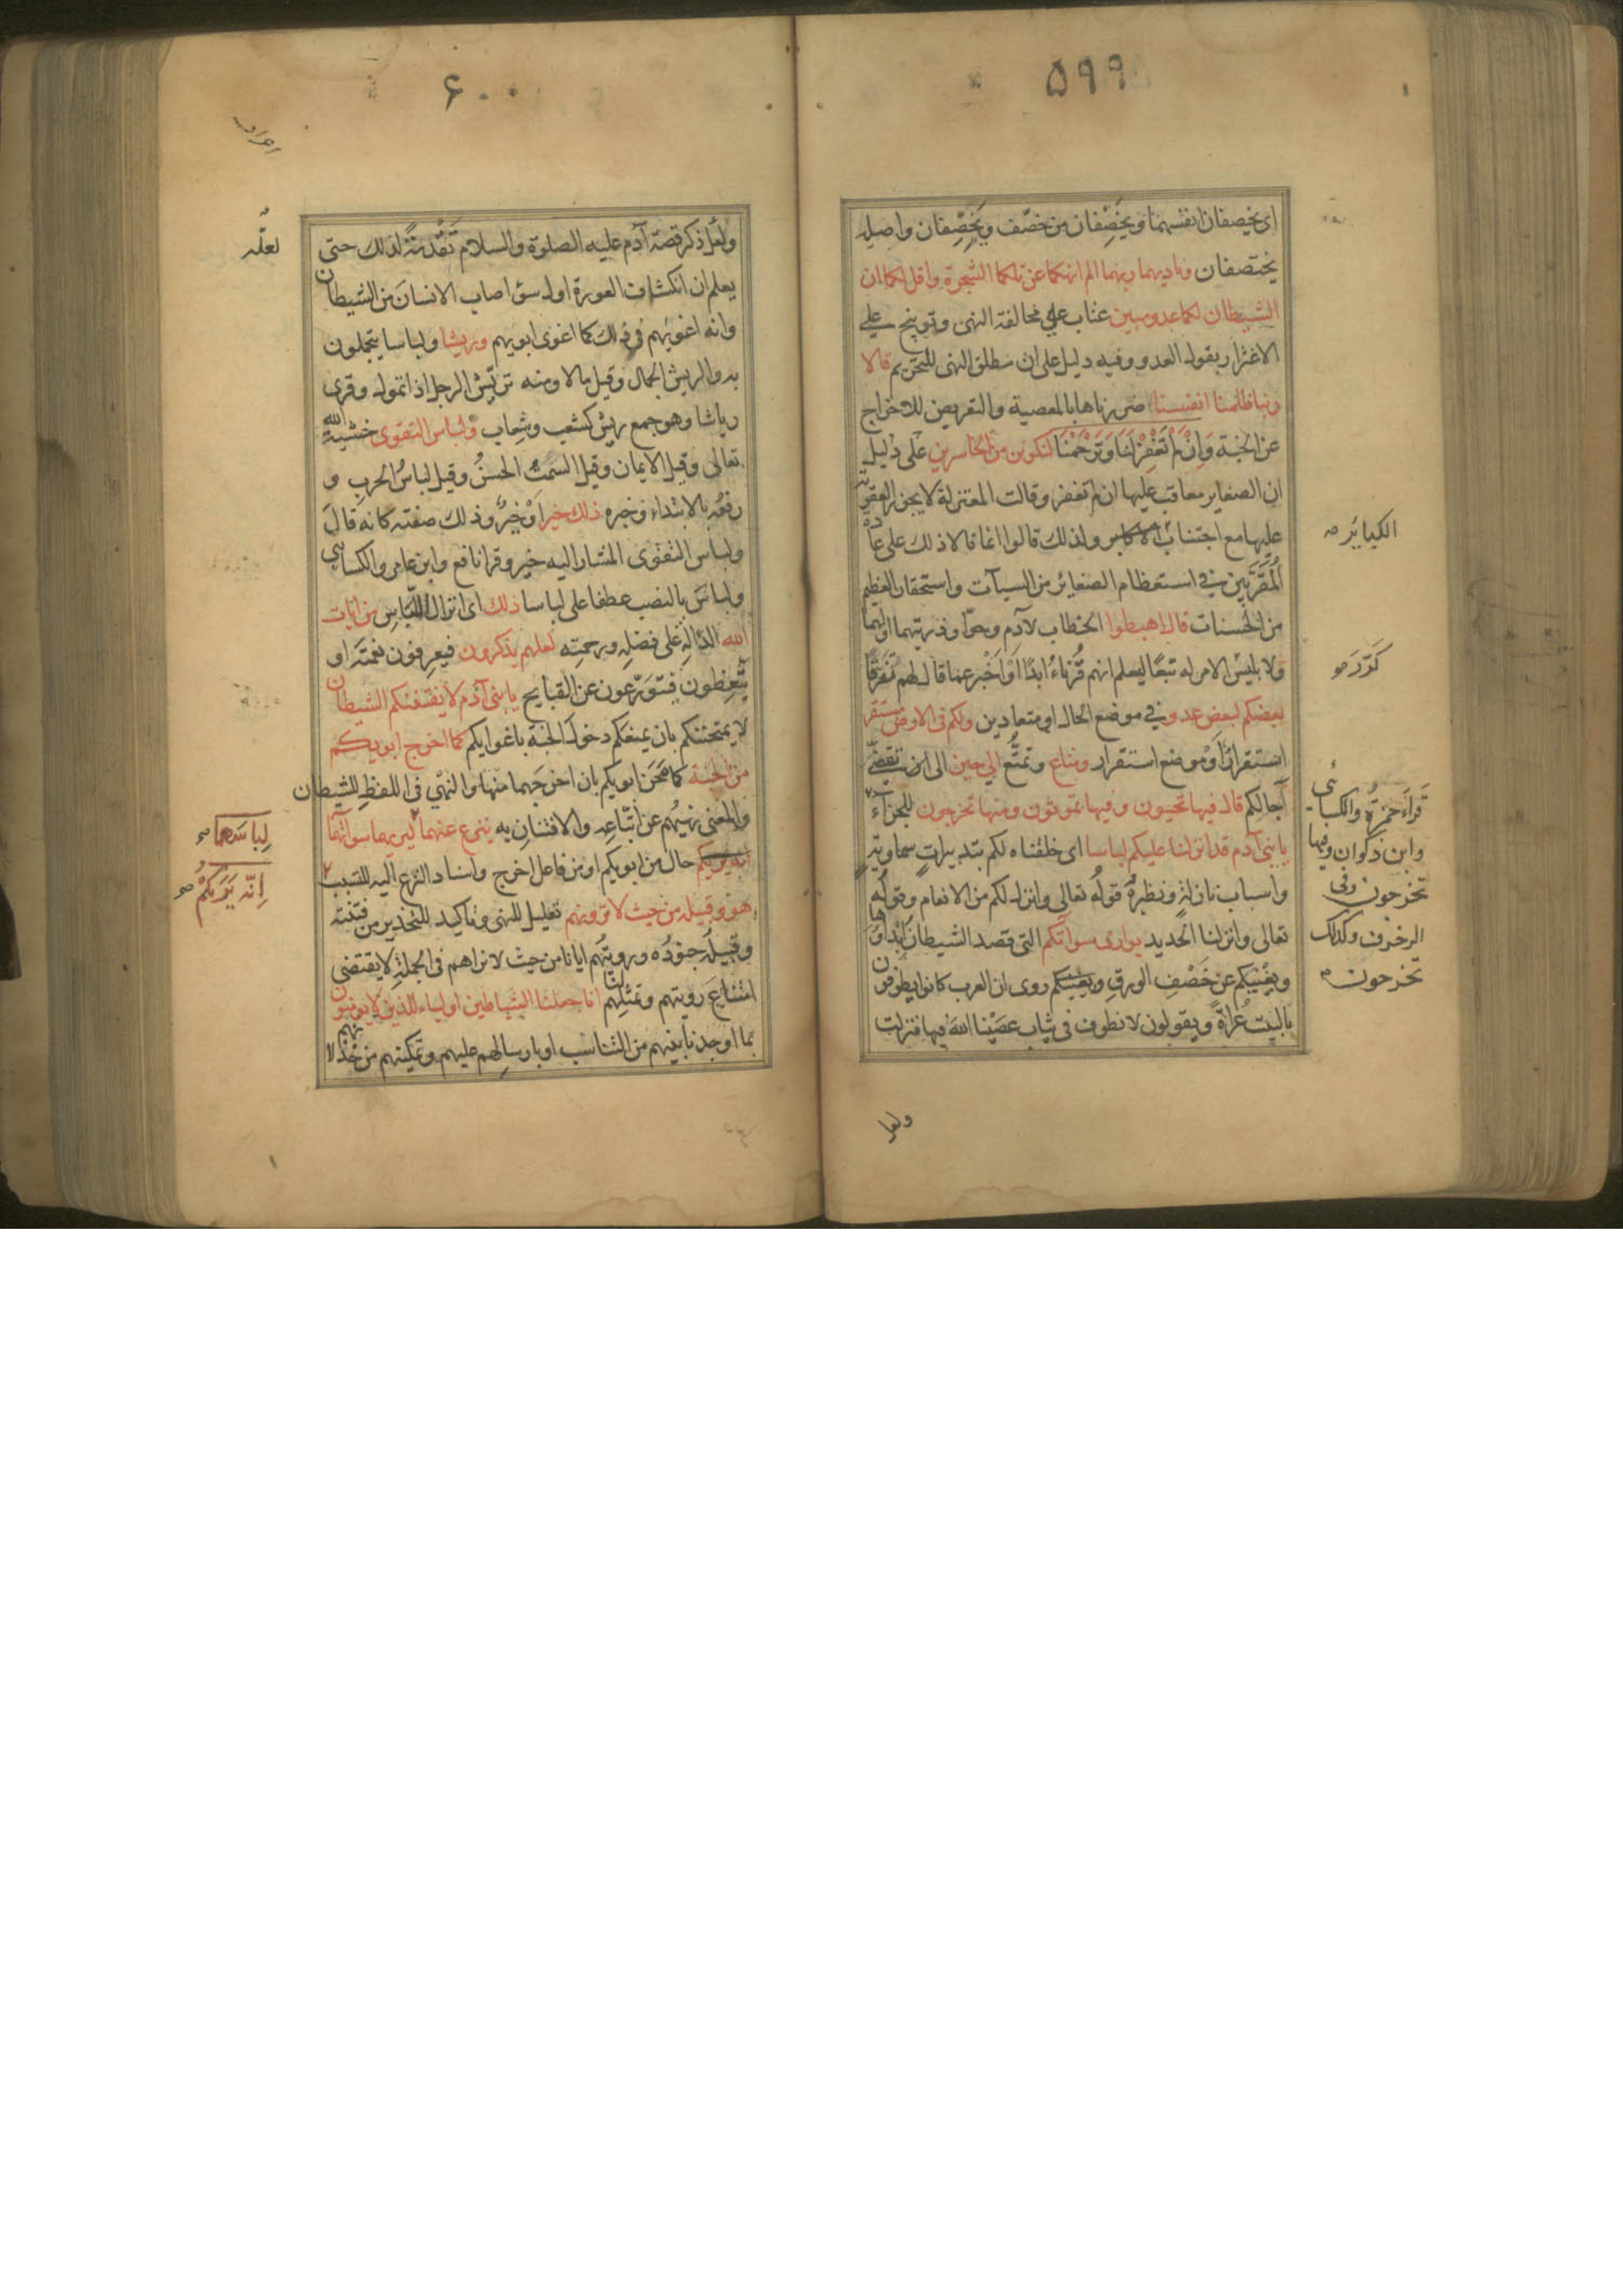 ۵۹۹
اى يخصفان انفسهما ويخَصِّفان من خصّف ويَخِصِّفان واصله
يختصفان وناديهما ربهما الم انهكما عن تلكما الشجرة واقل لكما ان
الشيطان لكما عدو مبين عتاب على مخالفة النهى وتوبيخ على
الاغترار بقول العدو وفيه دليل على ان مطلق النهى للتحريم قالا
ربنا ظلمنا انفسنا ضررناها بالمعصية والتعريض للاخراج
عن الجنة وَاِنْ لَمْ تَغْفِرْ لَنَا وَتَرْحَمْنَا لنكونن من الخاسرين على دليل
ان الصغاير معاقب عليها ان لم تغفر وقالت المعتزلة لا يجوز المعاقبة
عليها مع اجتناب الكبائر ولذلك قالوا انما قالا ذلك على عادة
المُقَرَّبين في استعظام الصغائر من السيآت واستحقار العظيم
من الحسنات قال اهبطوا الخطاب لآدم وحوّا وذريتهما او لهما
ولابليس الامر له تبعًا ليعلم انهم قُرَناءُ ابدًا اَوْ اَخْبر عما قال لهم مُتفرّقًا
بعضكم لبعض عدو في موضع الحال اى متعادين ولكم فى الارض مستقر
استقرارٌ اَوْ موضع استقرار ومتاع وتمتُّع الى حين الى ان تقضى
آجالكم قال فيها تحيون وفيها تموتون ومنها تخرجون للجزآء
يا بنى آدم قد انزلنا عليكم لباسا اى خلقناه لكم بتدبيراتٍ سماويّةٍ
واسبابٍ نازلةٍ ونظيرهُ قولُه تعالى وانزل لكم من الانعام وقولُه
تعالى وانزلنا الحديد يوارى سوآتكم التى قصد الشيطانُ اِبْدآءَها
ويُغْنِيكم عن خَصْفِ الورقِ روى ان العرب كانوا يطوفون
بالبيت عُراةً ويقولون لا نطوف فى ثياب عصَيْنا اللهَ فيها فنزلت
الكبائر صح
كَرّرَ صح
قراءَ حمزةُ والكسائى
وابن ذكوان وفيها
تخرجون وفى
الزخرف وكذلك
تخرجون صح
ولعل
۶۰۰
ولعل ذكر قصة آدم عليه الصلوة والسلام تَقْدِمَةٌ لذلك حتى
يعلم ان انكشاف العورة اول سوء اصاب الانسانَ من الشيطان
وانه اغويهم فى ذلك كما اغوى ابويهم وريشا ولباسا يتجملون
به والريش الجمال وقيل مالا ومنه تريّش الرجل اذا تمول وقرى
رياشا وهو جمع ريش كشعب وشِعاب ولباس التقوى خشيةُ الله
تعالى وقيل الايمان وقيل السمتُ الحسنُ وقيل لباسُ الحربِ و
رفعُه بالابتداء وخبره ذلك خير اَوْ خيرٌ وذلك صفته كانه قالَ
ولباس التقوى المشار اليه خير وقرا نافع وابن عامر والكسائى
ولباسَ بالنصب عطفا على لباسا ذلك اى انزال اللباسِ من آيات
الله الدّالّةِ على فضلِه ورحمتِه لعلهم يذكرون فيعرفون نعمتَه او
يتّعِظون فيتَوَرَّعون عن القبايح يا بنى آدم لا يفتننكم الشيطان
لا يمتحننكم بان يمنعكم دخول الجنة باغوايكم كما اخرج ابويكم
من الجنة كما مَحَن ابويكم بان اخرجَهما منها والنهى فى اللفظِ للشيطان
والمعنى نهيُهم عن اتّباعِه والافتتانِ به ينزع عنهما ليريهما سوآتهما
حال من ابويكم او من فاعل اخرج واسناد النزع اليه للتسبب
هو وقبيله من حيث لا ترونهم تعليل للنهى وتاكيد للتحذير من فتنته
وقبيلُه جنودُه ورويتُهم ايانا من حيث لا نراهم فى الجملةِ لا يقتضى
امتناعَ رويتهم وتمثلِهم لنا انا جعلنا الشياطين اولياء للذين لا يومنون
بما اوجدنا بينهم من التناسب او بارسالِهم عليهم وتمكينهم من خذلانهم
لعلّه
لِباسَهما صح
اِنّه يَرَيكُمْ صح